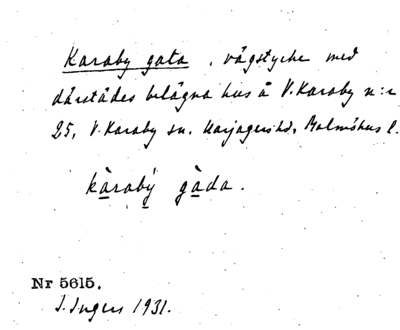 Karaby gata, vägstycke med
därstädes belägna hus å V. Karaby n:r
25, V. Karaby sn. Harjagers hd, Malmöhus l.
kàrabý gàda.
Nr 5615.
I. Ingers 1931.